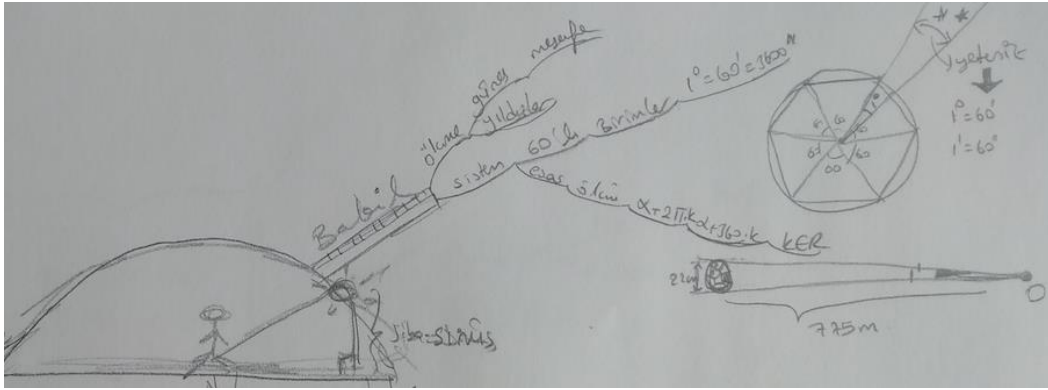 Babil
ölçme
güneş
mesafe
yıldızlar
sistem
60'lı
Birimler
1°=60'=3600"
esas ölçü
α+2π.k
α+360.k
kER
Jiba=SİNÜS
1°
60
60
60
60
60
1°=60'
1'=60"
22cm
775m